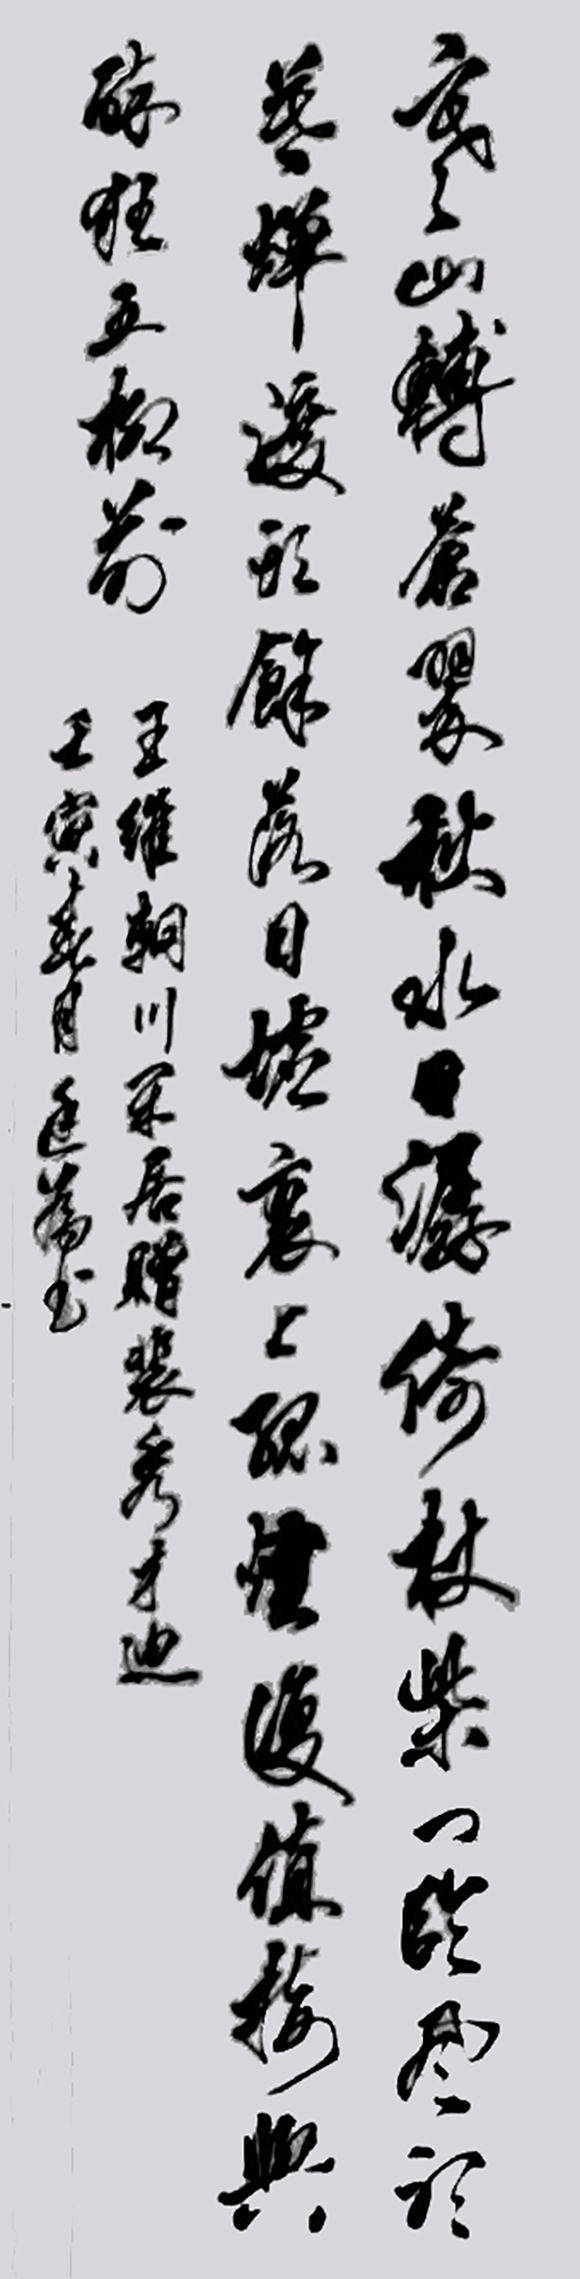 寒山轉蒼翠秋水日潺倚杖柴門臨風聽
暮蟬渡頭餘落日墟裏上孤煙復值接輿
醉狂五柳前
王維輞川閒居贈裴秀才迪
壬寅春月廷書